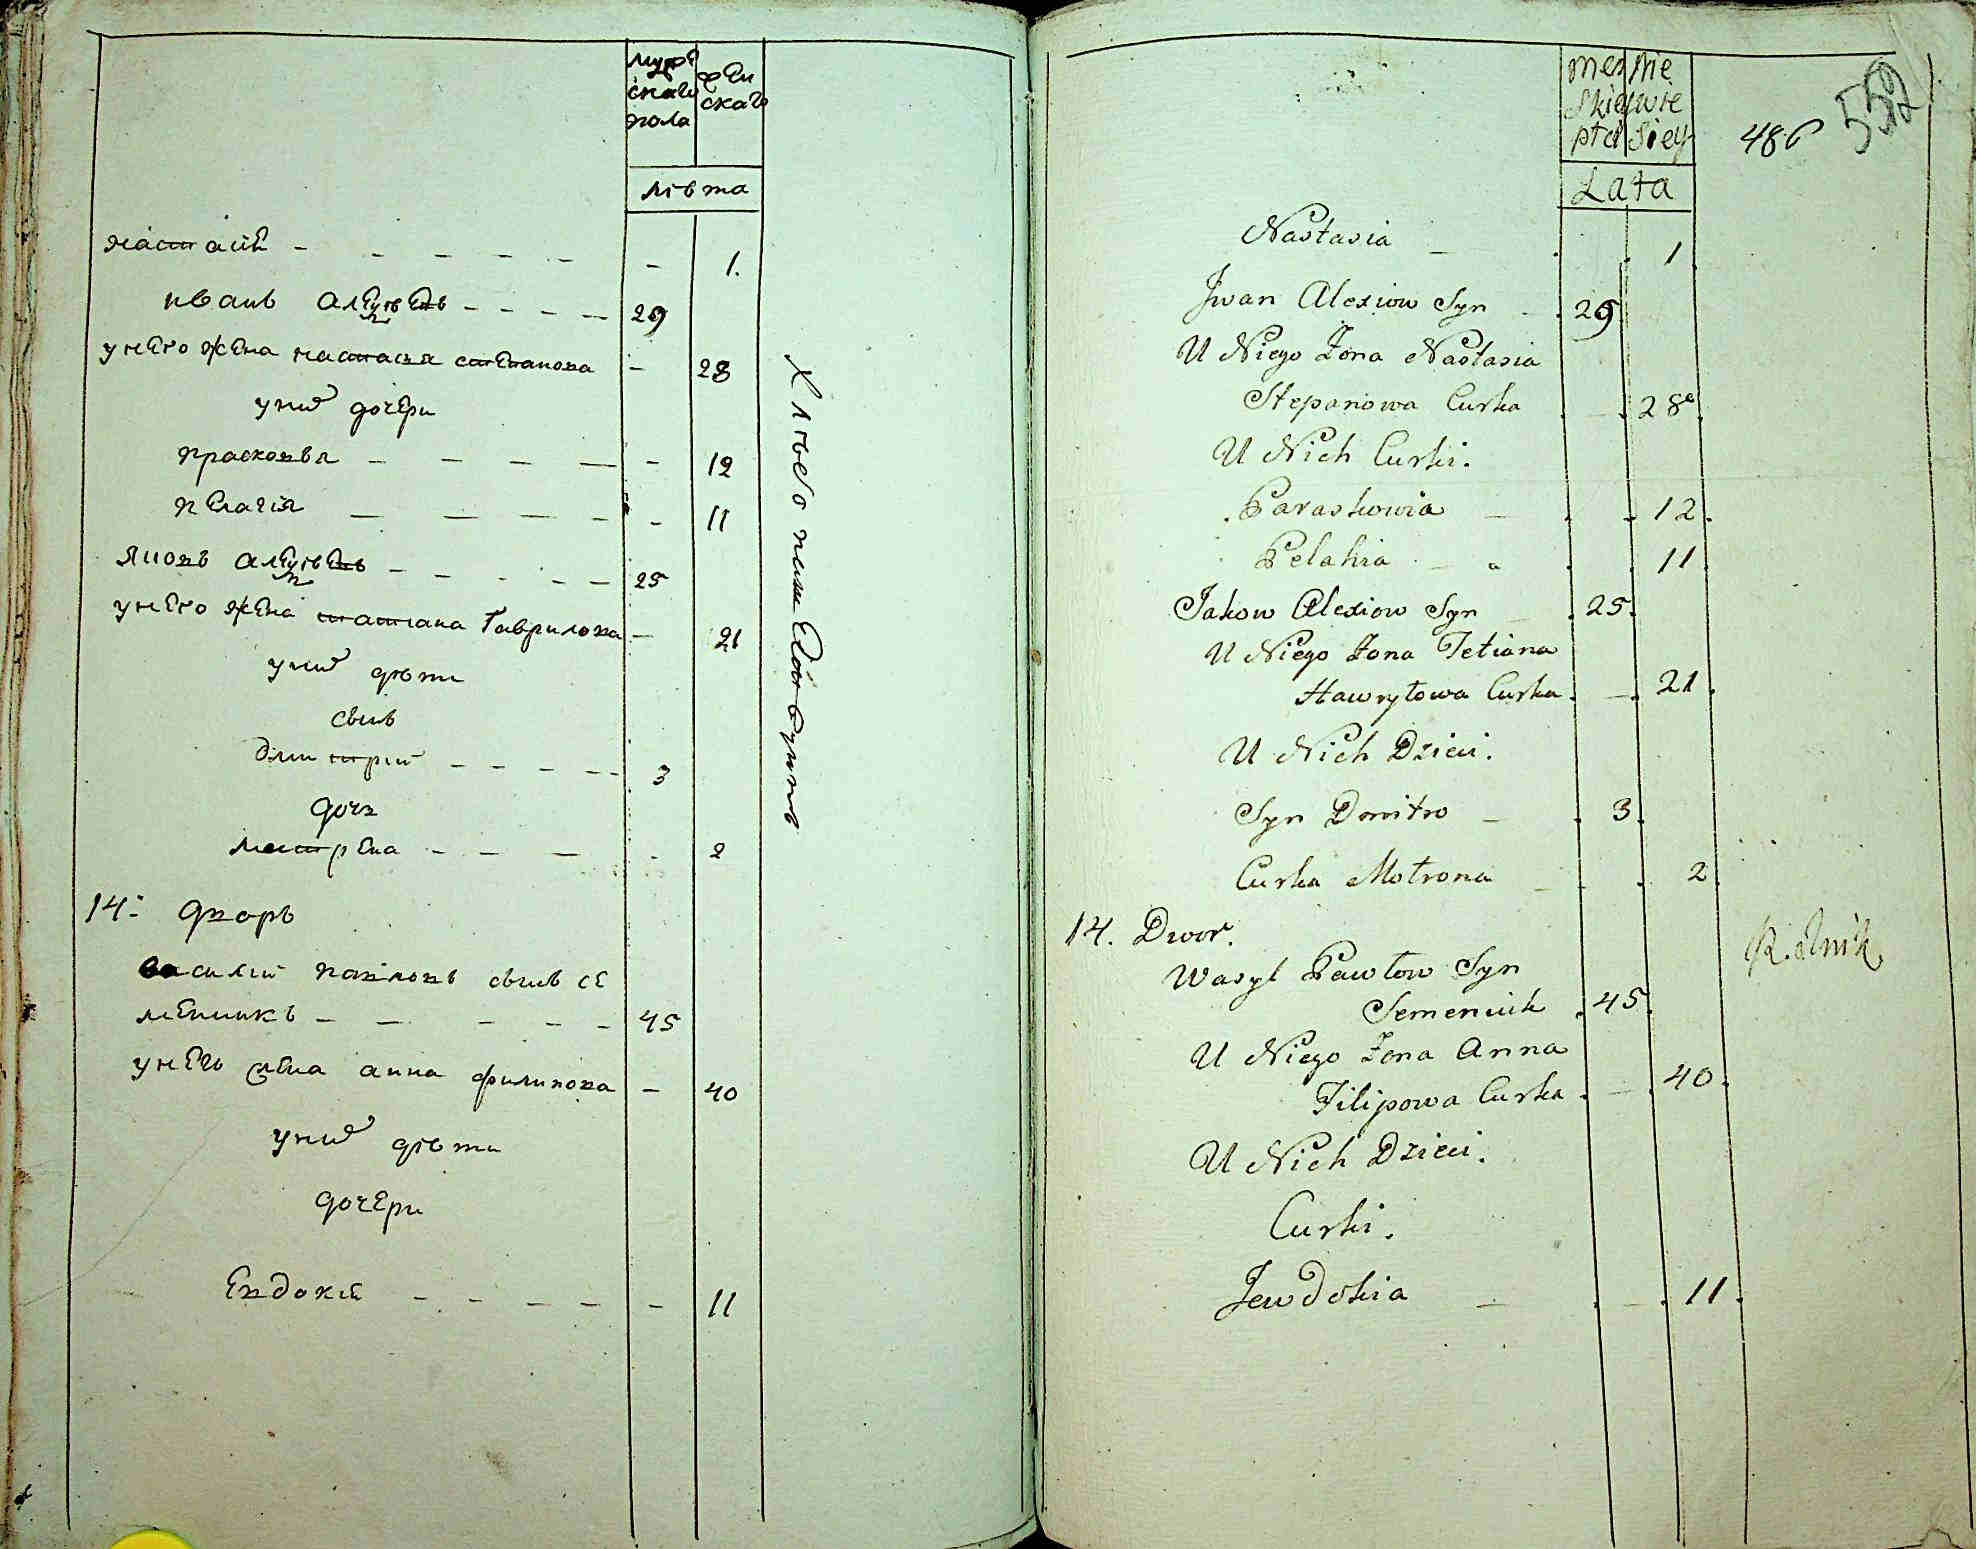 мужескаго пола
женскаго
лѣта
настасія - - - - - - - 1.
иванъ алексѣевъ - - - - 29
у него жена настасья степанова - 28
у них дочери
прасковья - - - - - 12
пелагія - - - - - 11
яковъ алексѣевъ - - - - - 25
у него жена татиана Гаврилова - 21
у них дѣти
сынъ
дмитрій - - - - - 3
дочь
мотрена - - - - 2
14: дворъ
василий павловъ сынъ се
менюкъ - - - - - 45
у него жена анна филипова - 40
у них дѣти
дочери
Евдокія - - - - - 11
Хлѣбопашествуютъ
męskiey płci
Niewie sciey
Lata
486
552
Nastasia - . . 1
Jwan Alexiow Syn - . 29
U Niego Żona Nastasia
Stepanowa Curka . - . 28
U Nich Curki.
Paraskowia - . . 12.
Pelahia - . . 11.
Jakow Alexiow Syn - . 25.
U Niego Żona Tetiana
Hawryłowa Curka . - . 21.
U Nich Dzieci.
Syn Dmitro - . 3.
Curka Motrona - . . 2.
14. Dwor.
Wasyl Pawłow Syn
Semeniuk . 45.
U Niego Żona Anna
Filipowa Curka . - . 40.
U Nich Dzieci.
Curki.
Jewdokia - . - . 11.